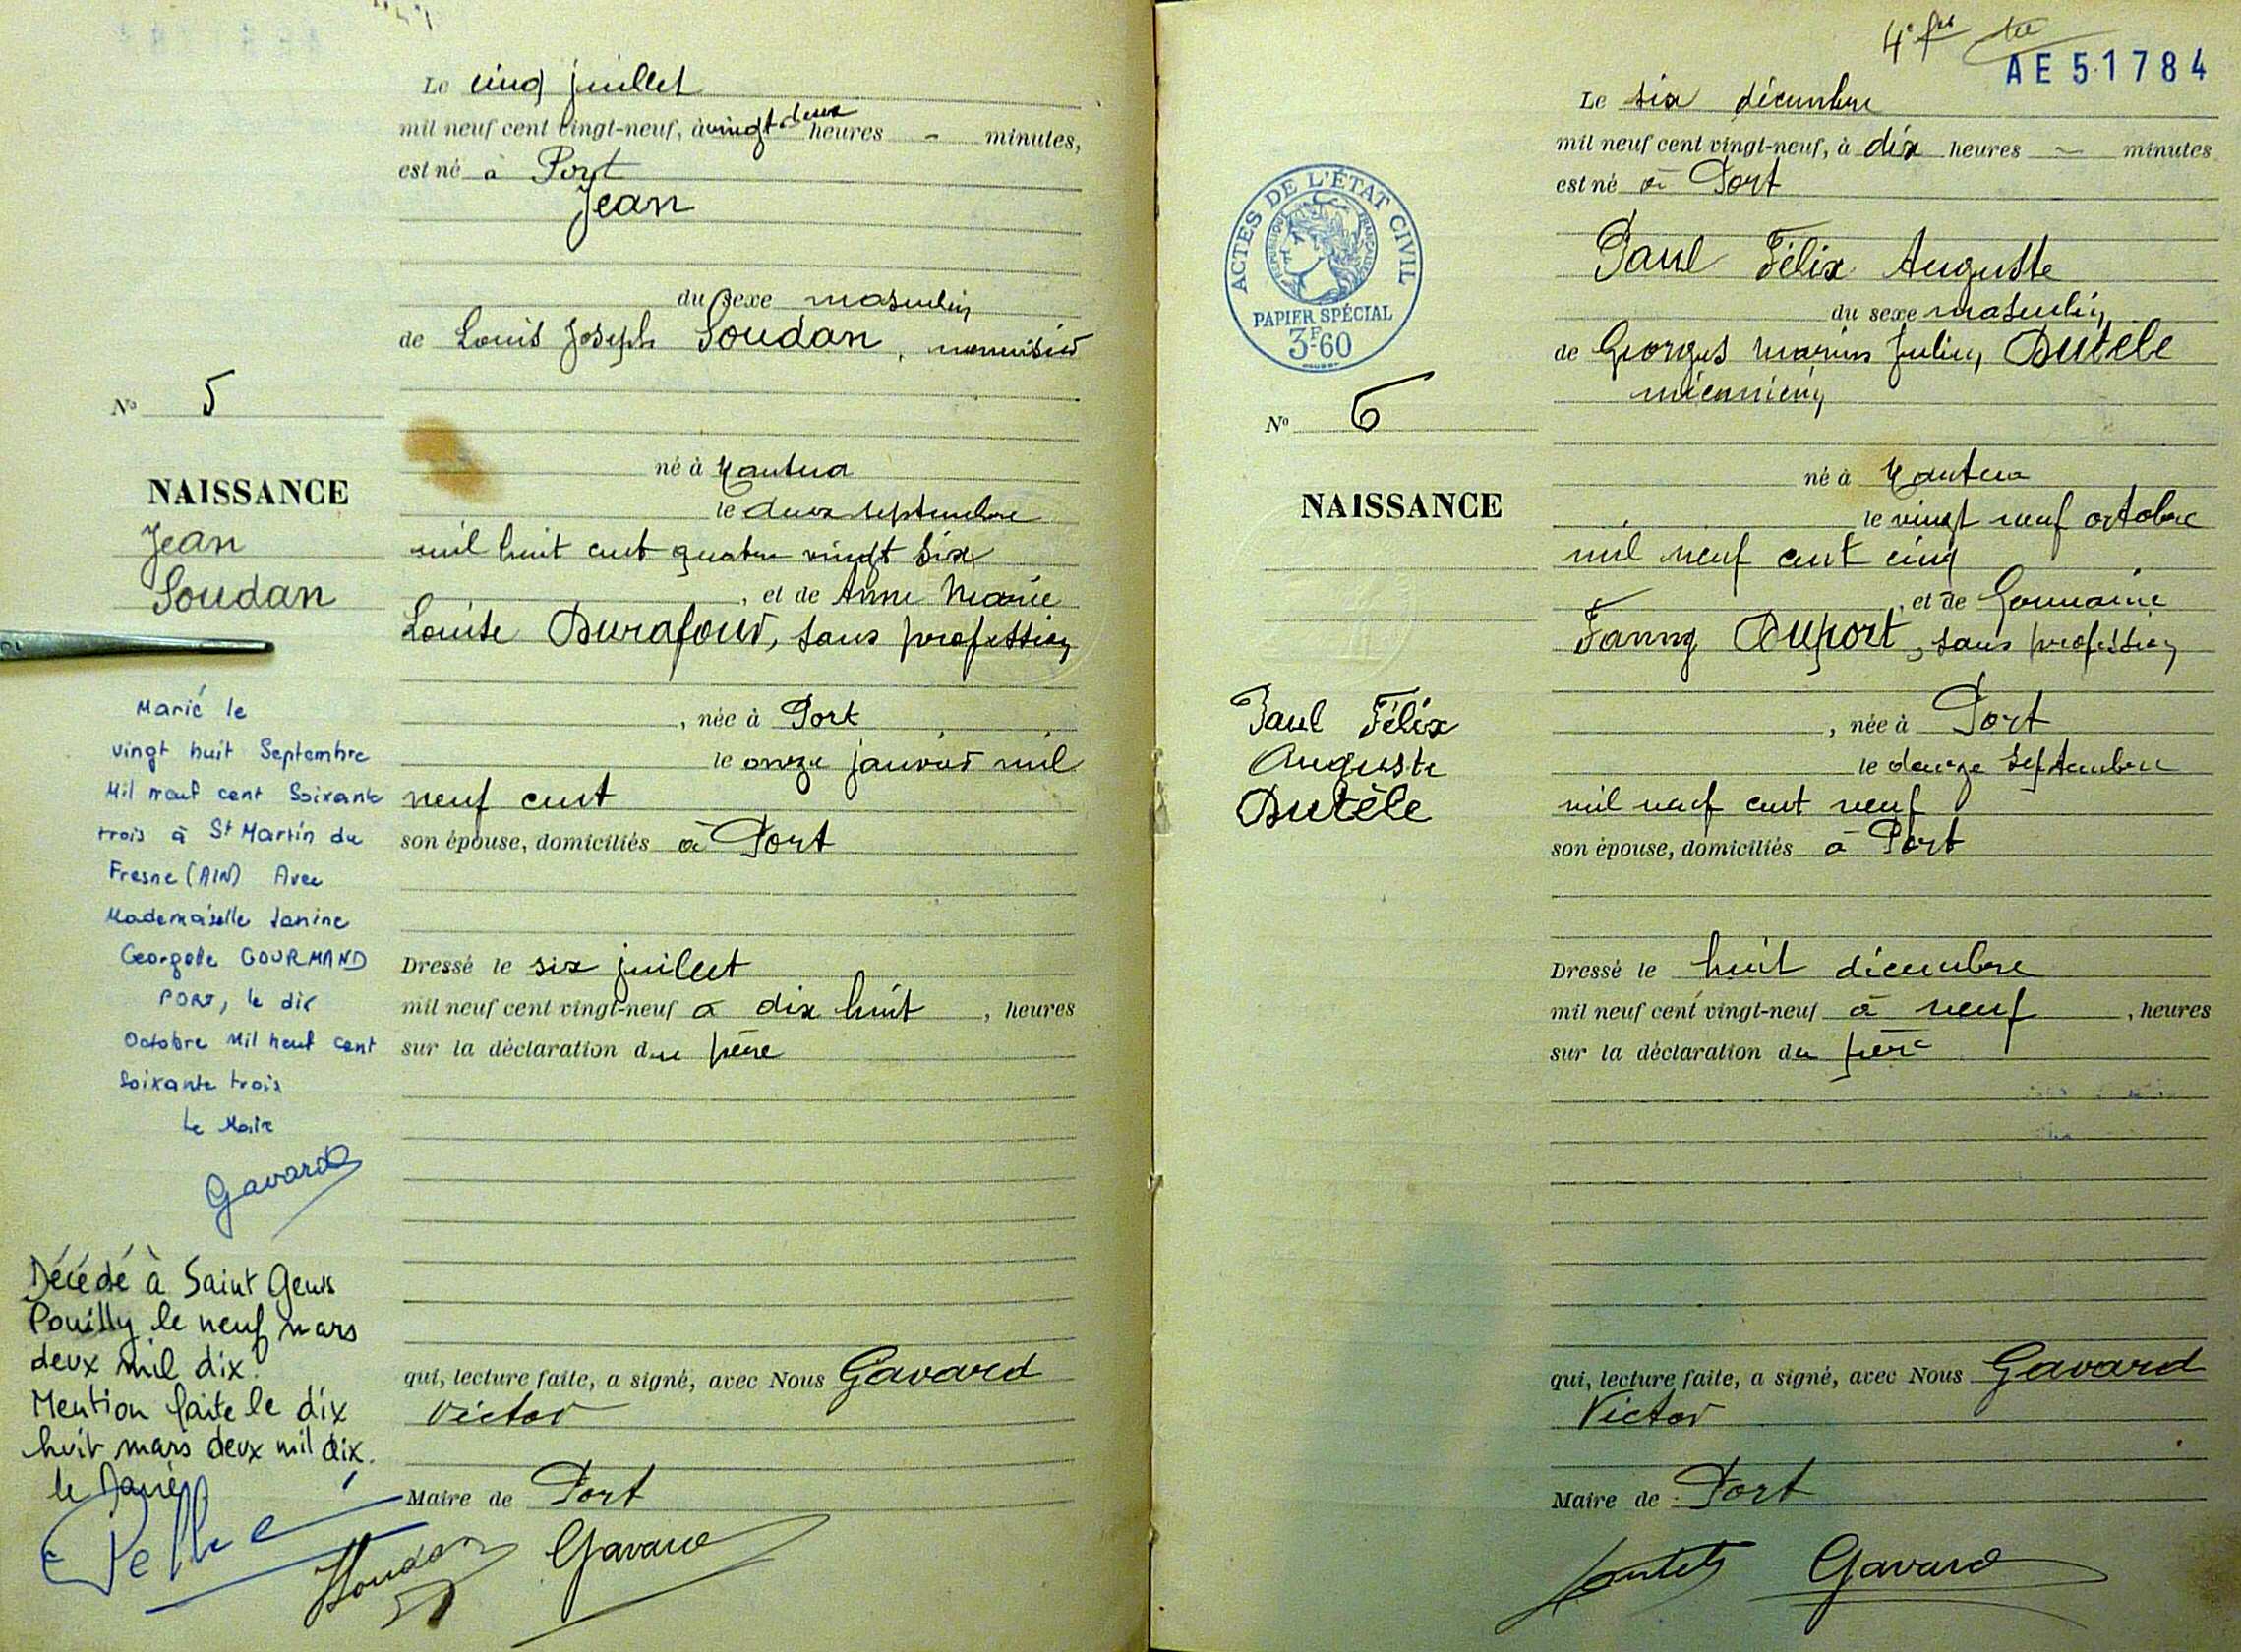 Le cinq juillet
mil neuf cent vingt-neuf, à vingt deux heures - minutes,
est né à Port
Jean
du sexe masculin
de Louis Joseph Soudan, menuisier
N° 5
né à Nantua
NAISSANCE
le deux septembre
Jean
mil huit cent quatre vingt six
Soudan
, et de Anne Marie
Louise Durafour, sans profession
, née à Port
le onze janvier mil
neuf cent
son épouse, domiciliés à Port
Dressé le six juillet
mil neuf cent vingt-neuf à dix huit , heures
sur la déclaration du père
qui, lecture faite, a signé, avec Nous Gavard
Victor
Maire de Port
Soudan Gavard
Marié le
vingt huit Septembre
Mil neuf cent Soixante
trois à St Martin du
Fresne (AIN) Avec
Mademoiselle Janine
Georgette GOURMAND
PORT, le dix
Octobre Mil neuf cent
Soixante trois
Le Maire
Gavard
Décédé à Saint Genis
Pouilly le neuf mars
deux mil dix.
Mention faite le dix
huit mars deux mil dix.
le Maire
4e
AE 51784
Le six décembre
mil neuf cent vingt-neuf, à dix heures - minutes
est né à Port
Paul Félix Auguste
du sexe masculin
de Georges Marius Julien Dutèle
mécanicien
ACTES DE L'ÉTAT CIVIL
RÉPUBLIQUE FRANÇAISE
PAPIER SPÉCIAL
3F60
N° 6
né à Nantua
NAISSANCE
le vingt neuf octobre
mil neuf cent cinq
, et de Germaine
Fanny Duport, sans profession
Paul Félix
Auguste
Dutèle
, née à Port
le douze Septembre
mil neuf cent neuf
son épouse, domiciliés à Port
Dressé le huit décembre
mil neuf cent vingt-neuf à neuf , heures
sur la déclaration du père
qui, lecture faite, a signé, avec Nous Gavard
Victor
Maire de Port
Gavard